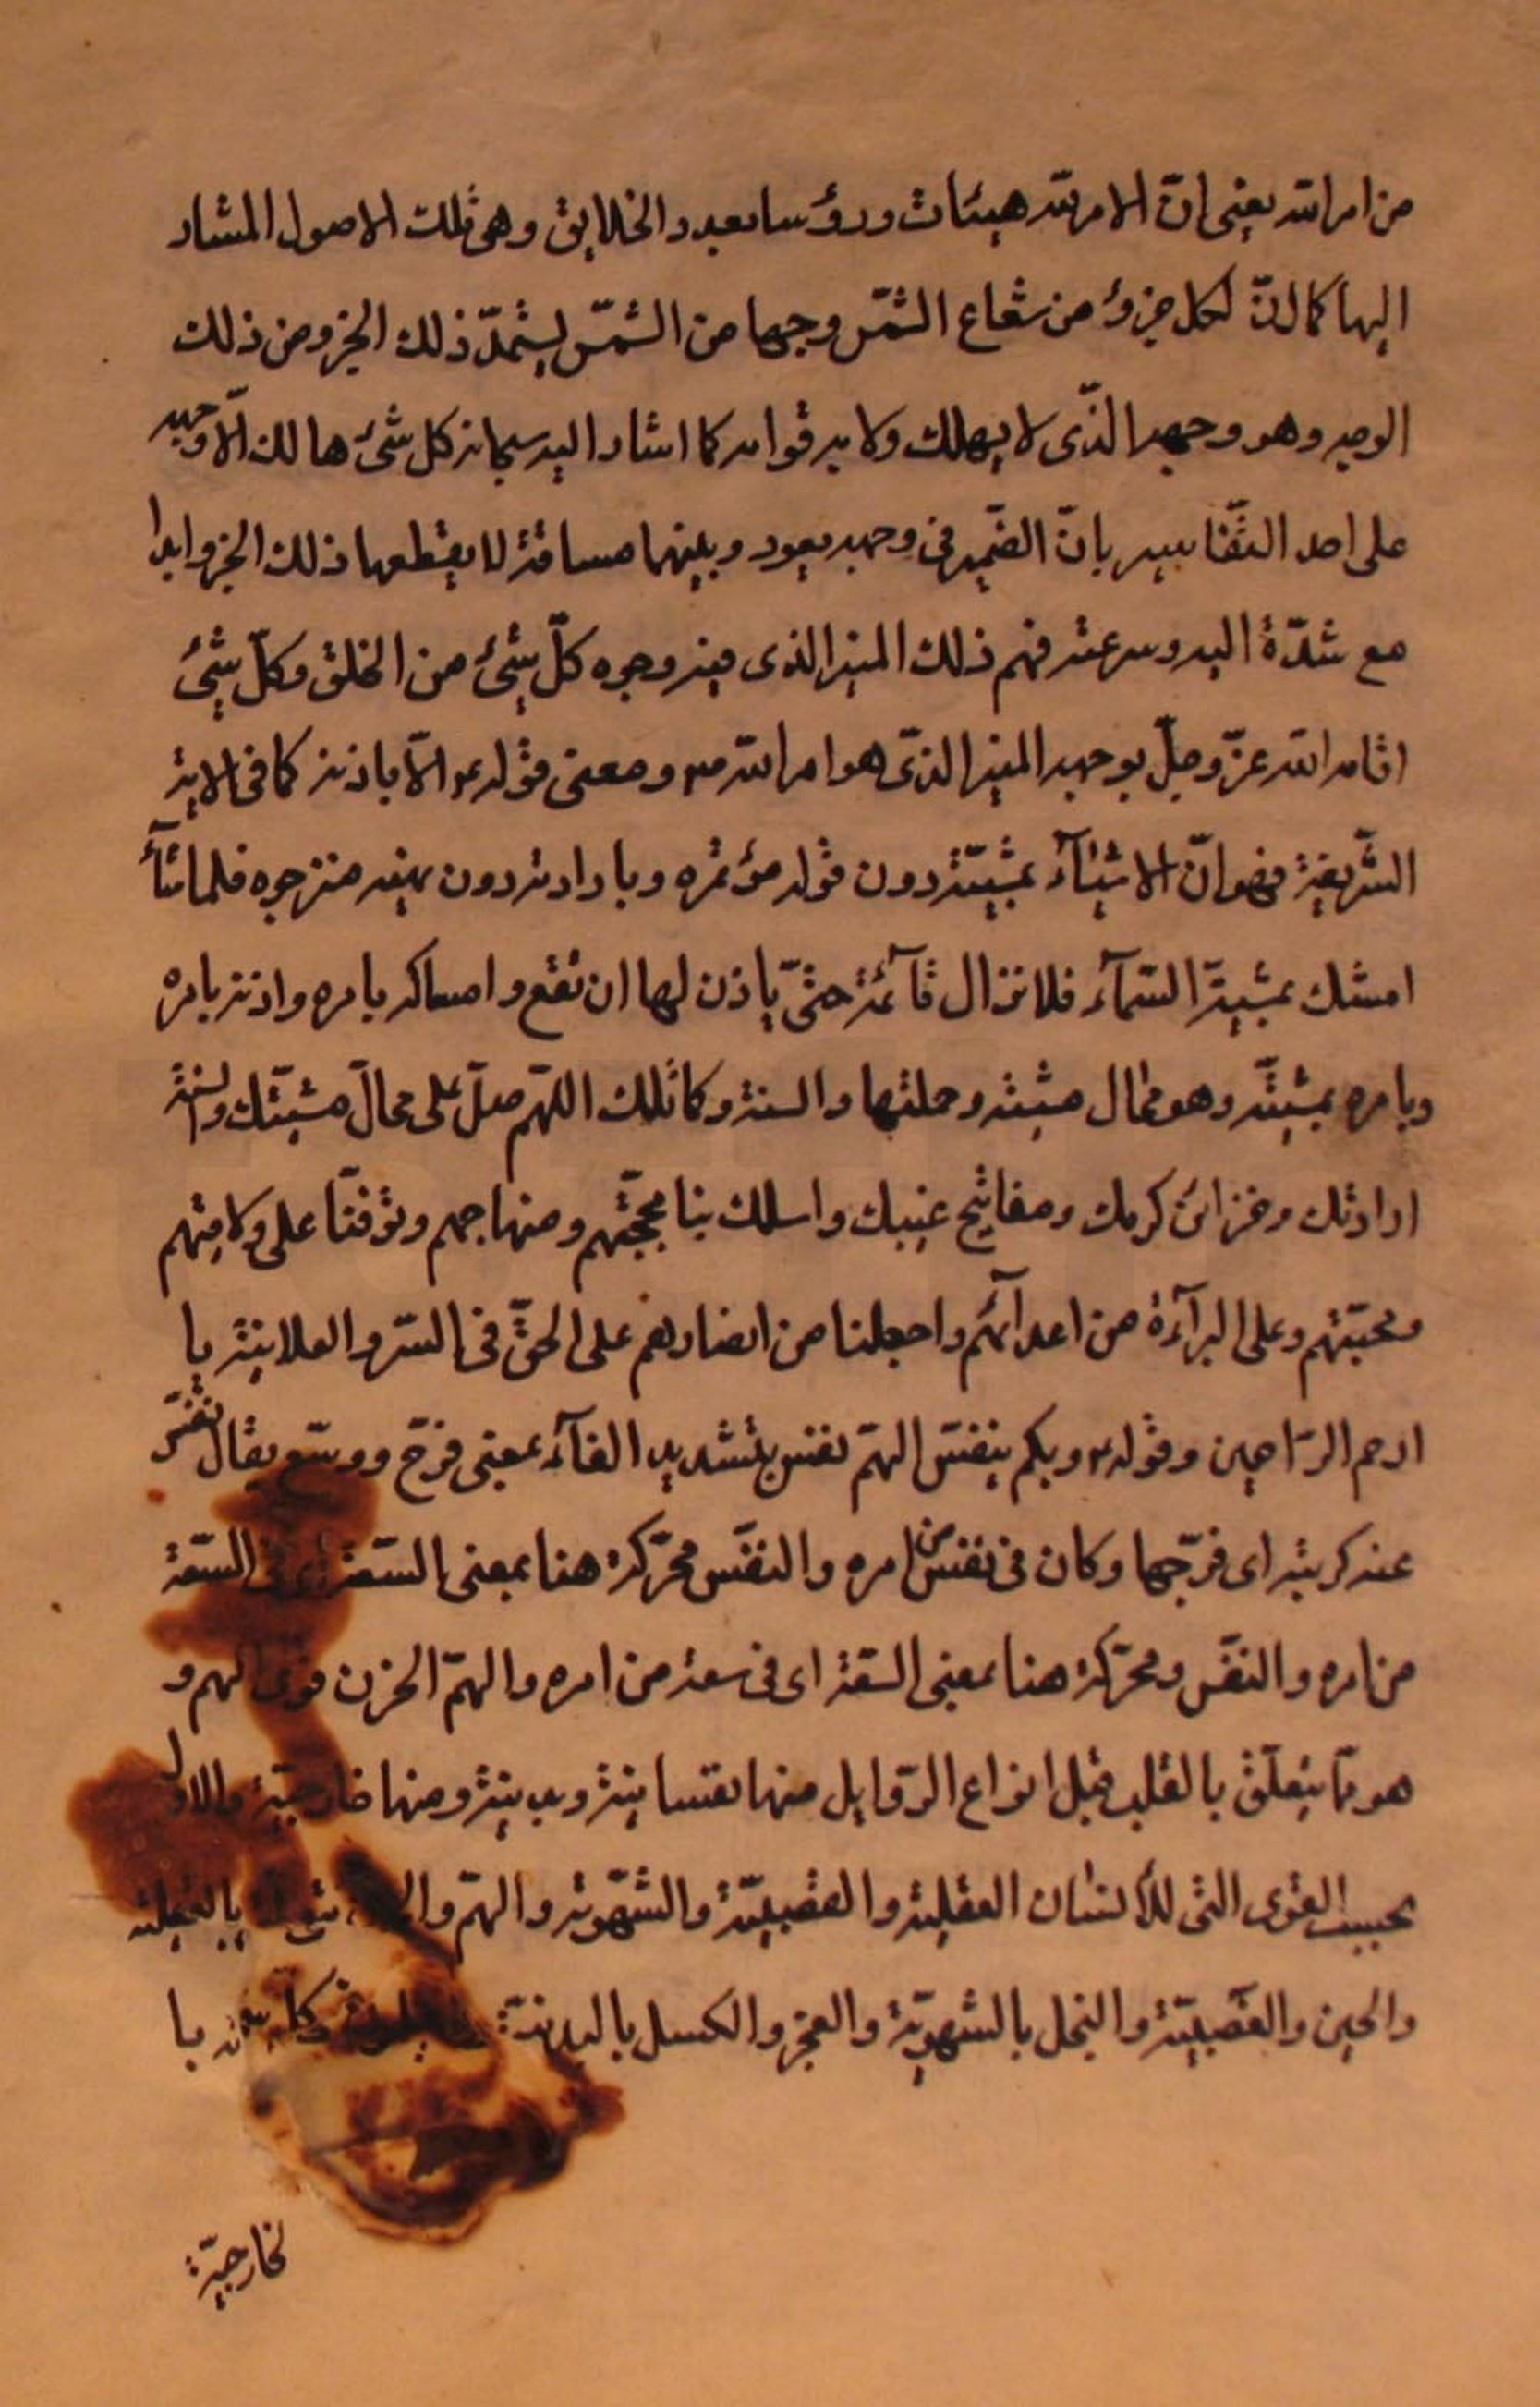 من امر الله يعنى انّ الامر الله هيئات ورؤسا بعدد الخلايق وهى تلك الاصول المشار
اليها كما انّ لكل جزؤ من شعاع الشمس وجها من الشمس يستمدّ ذلك الجزو من ذلك
الوجه وهو وجهه الذّى لا يهلك ولا به قوامه كما اشار اليه سبحانه كل شئ هالك الّا وجهه
على احد التّفاسير بانّ الضّمير فى وجهه يعود وبينهما مسافة لا يقطعها ذلك الجزو ابدا
مع شدّة اليه وسرعته فهم ذلك المنير الذى فيه وجوه كلّ شئ من الخلق وكلّ شئ
اقامه الله عزّ وجلّ بوجهه المنير الذّى هو امر الله ومعنى قوله الّا باذنه كما فى الاية
الشّريفة فهو انّ الاشيآء بمشيّته دون قوله مؤتمره وبارادته دون نهيه منزجره فلما شآء
امسك بمشيته السّمآء فلا تزال قآئمة حتّى يأذن لها ان تقع وامساكه بامره واذنه بامره
وبامره بمشيّته وهو محال مشيته وحملتها والسنة وكا تلك اللهّم صلّ على محالّ مشيّتك والسنة
ارادتك وخزائن كرمك ومفاتيح غيبك واسلك بنا محجّتهم ومنهاجهم وتوفنّا على ولايتهم
ومحبّتهم وعلى البرآءة من اعدآئهم واجعلنا من انصارهم على الحقّ فى السّر والعلانية يا
ارحم الرّاحمين وقوله وبكم ينفّس الهمّ نفس بتشديد الفآء بمعنى فرّج ووسّع يقال نفّس
عنه كربته اى فرّجها وكان فى نفس من امره والنفَس محرّكة هنا بمعنى السّعة اى فى السّعة
من امره والنفَس ومحرّكة هنا بمعنى السّعة اى فى سعة من امره والهمّ الحزن الهم و
هو ممّا يتعلّق بالقلب قبل انواع الرّذايل منها نفسانية وبدنية ومنها خارجيّة والاول
بحسب القوى التى للأنسان العقلية والغضبيّة والشّهوية والهمّ بالعقلية
والجبن والغضبيّة والبخل بالشّهويّة والعجز والكسل بالبدنيّة با
لخارجيّة